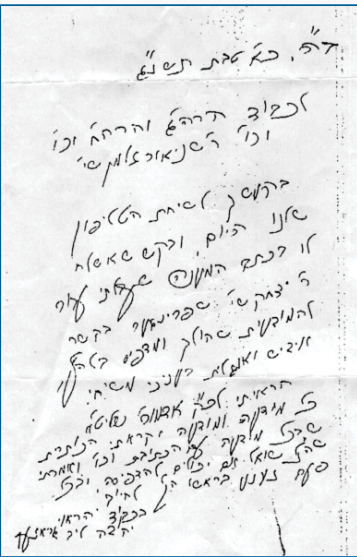 ב"ה, כ"א טבת תשנ"ג
לכבוד הרה"ג והרה"ח וכו'
וכו' ר' שניאור זלמן שי'
בהמשך לשיחת הטלפון
שלנו היום, ובקש שאשלח
לו בכתב המענה
ר' יצחק שי' שפרינגער בקשר
להמודעות שהולך ומדפיס
אידיש ואנגלית בעניני משיח
הראיתי לכ"ק אדמו"ר שליט"א
כל מודעה ומודעה וקראתי הכותרת
שבכל מודעה עם הכתוב וכו' ואמרתי
שהנ"ל שואל אם יכולים להדפיסה ובכל
פעם נענע בראשו הק' לחיוב
בכבוד הראוי
יהודה ליב גראנער